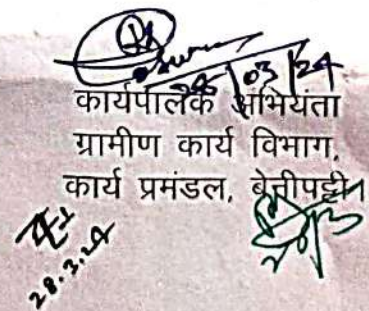 28/03/24
कार्यपालक अभियंता
ग्रामीण कार्य विभाग,
कार्य प्रमंडल, बेनीपट्टी।
28.3.24